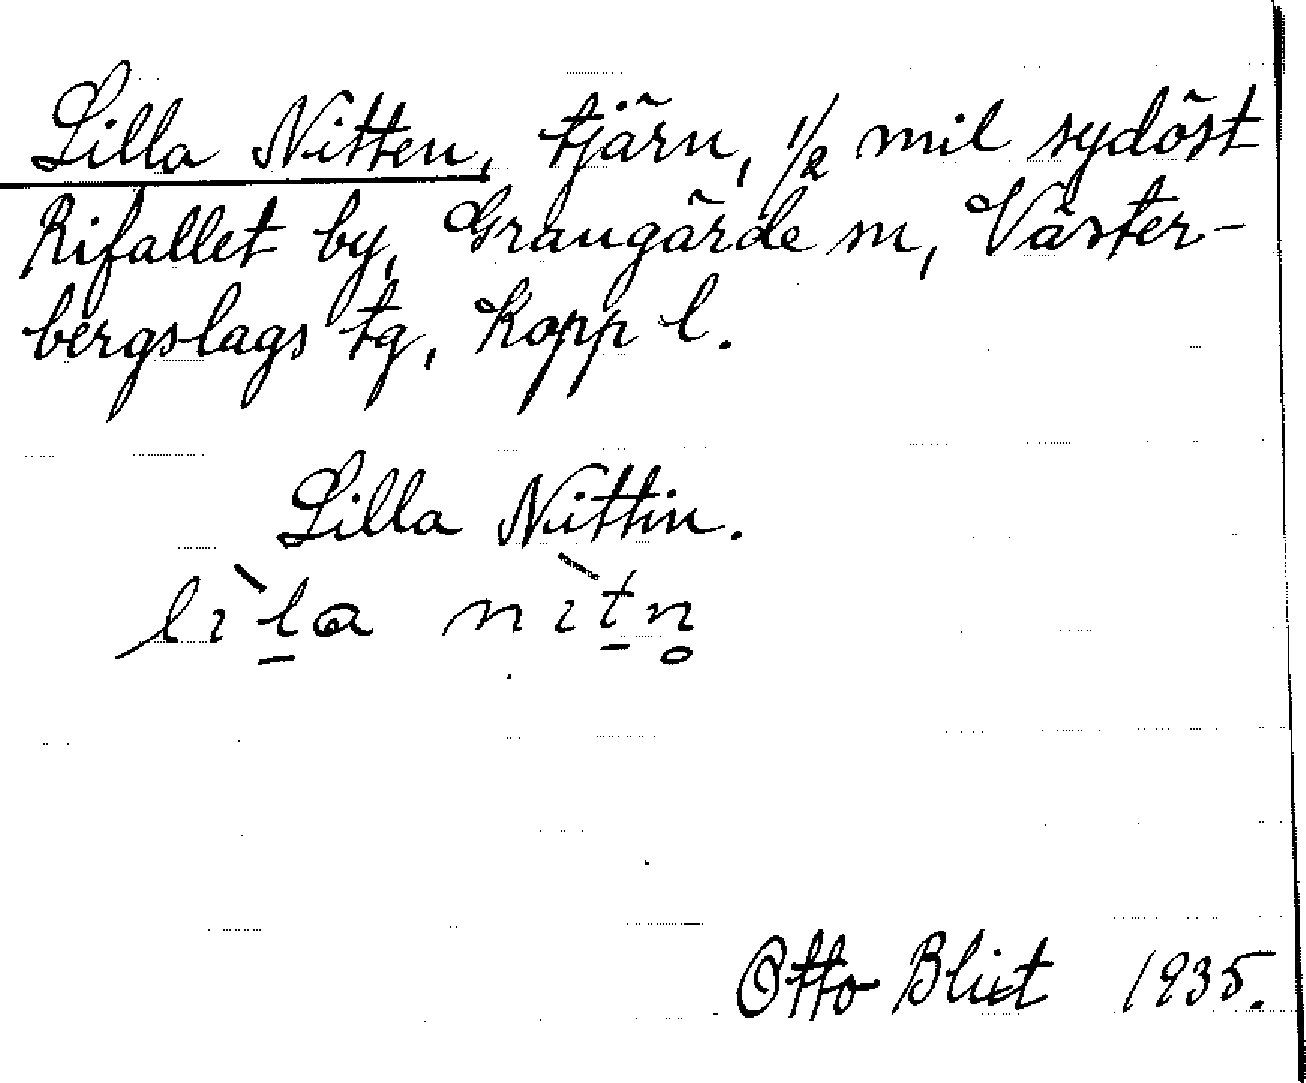 Lilla Nitten, tjärn, 1/2 mil sydöst
Rifallet by, Grangärde sn, Väster-
bergslags tg, Kopp l.
Lilla Nittin.
lìla nìtn̥
Otto Blixt 1935.